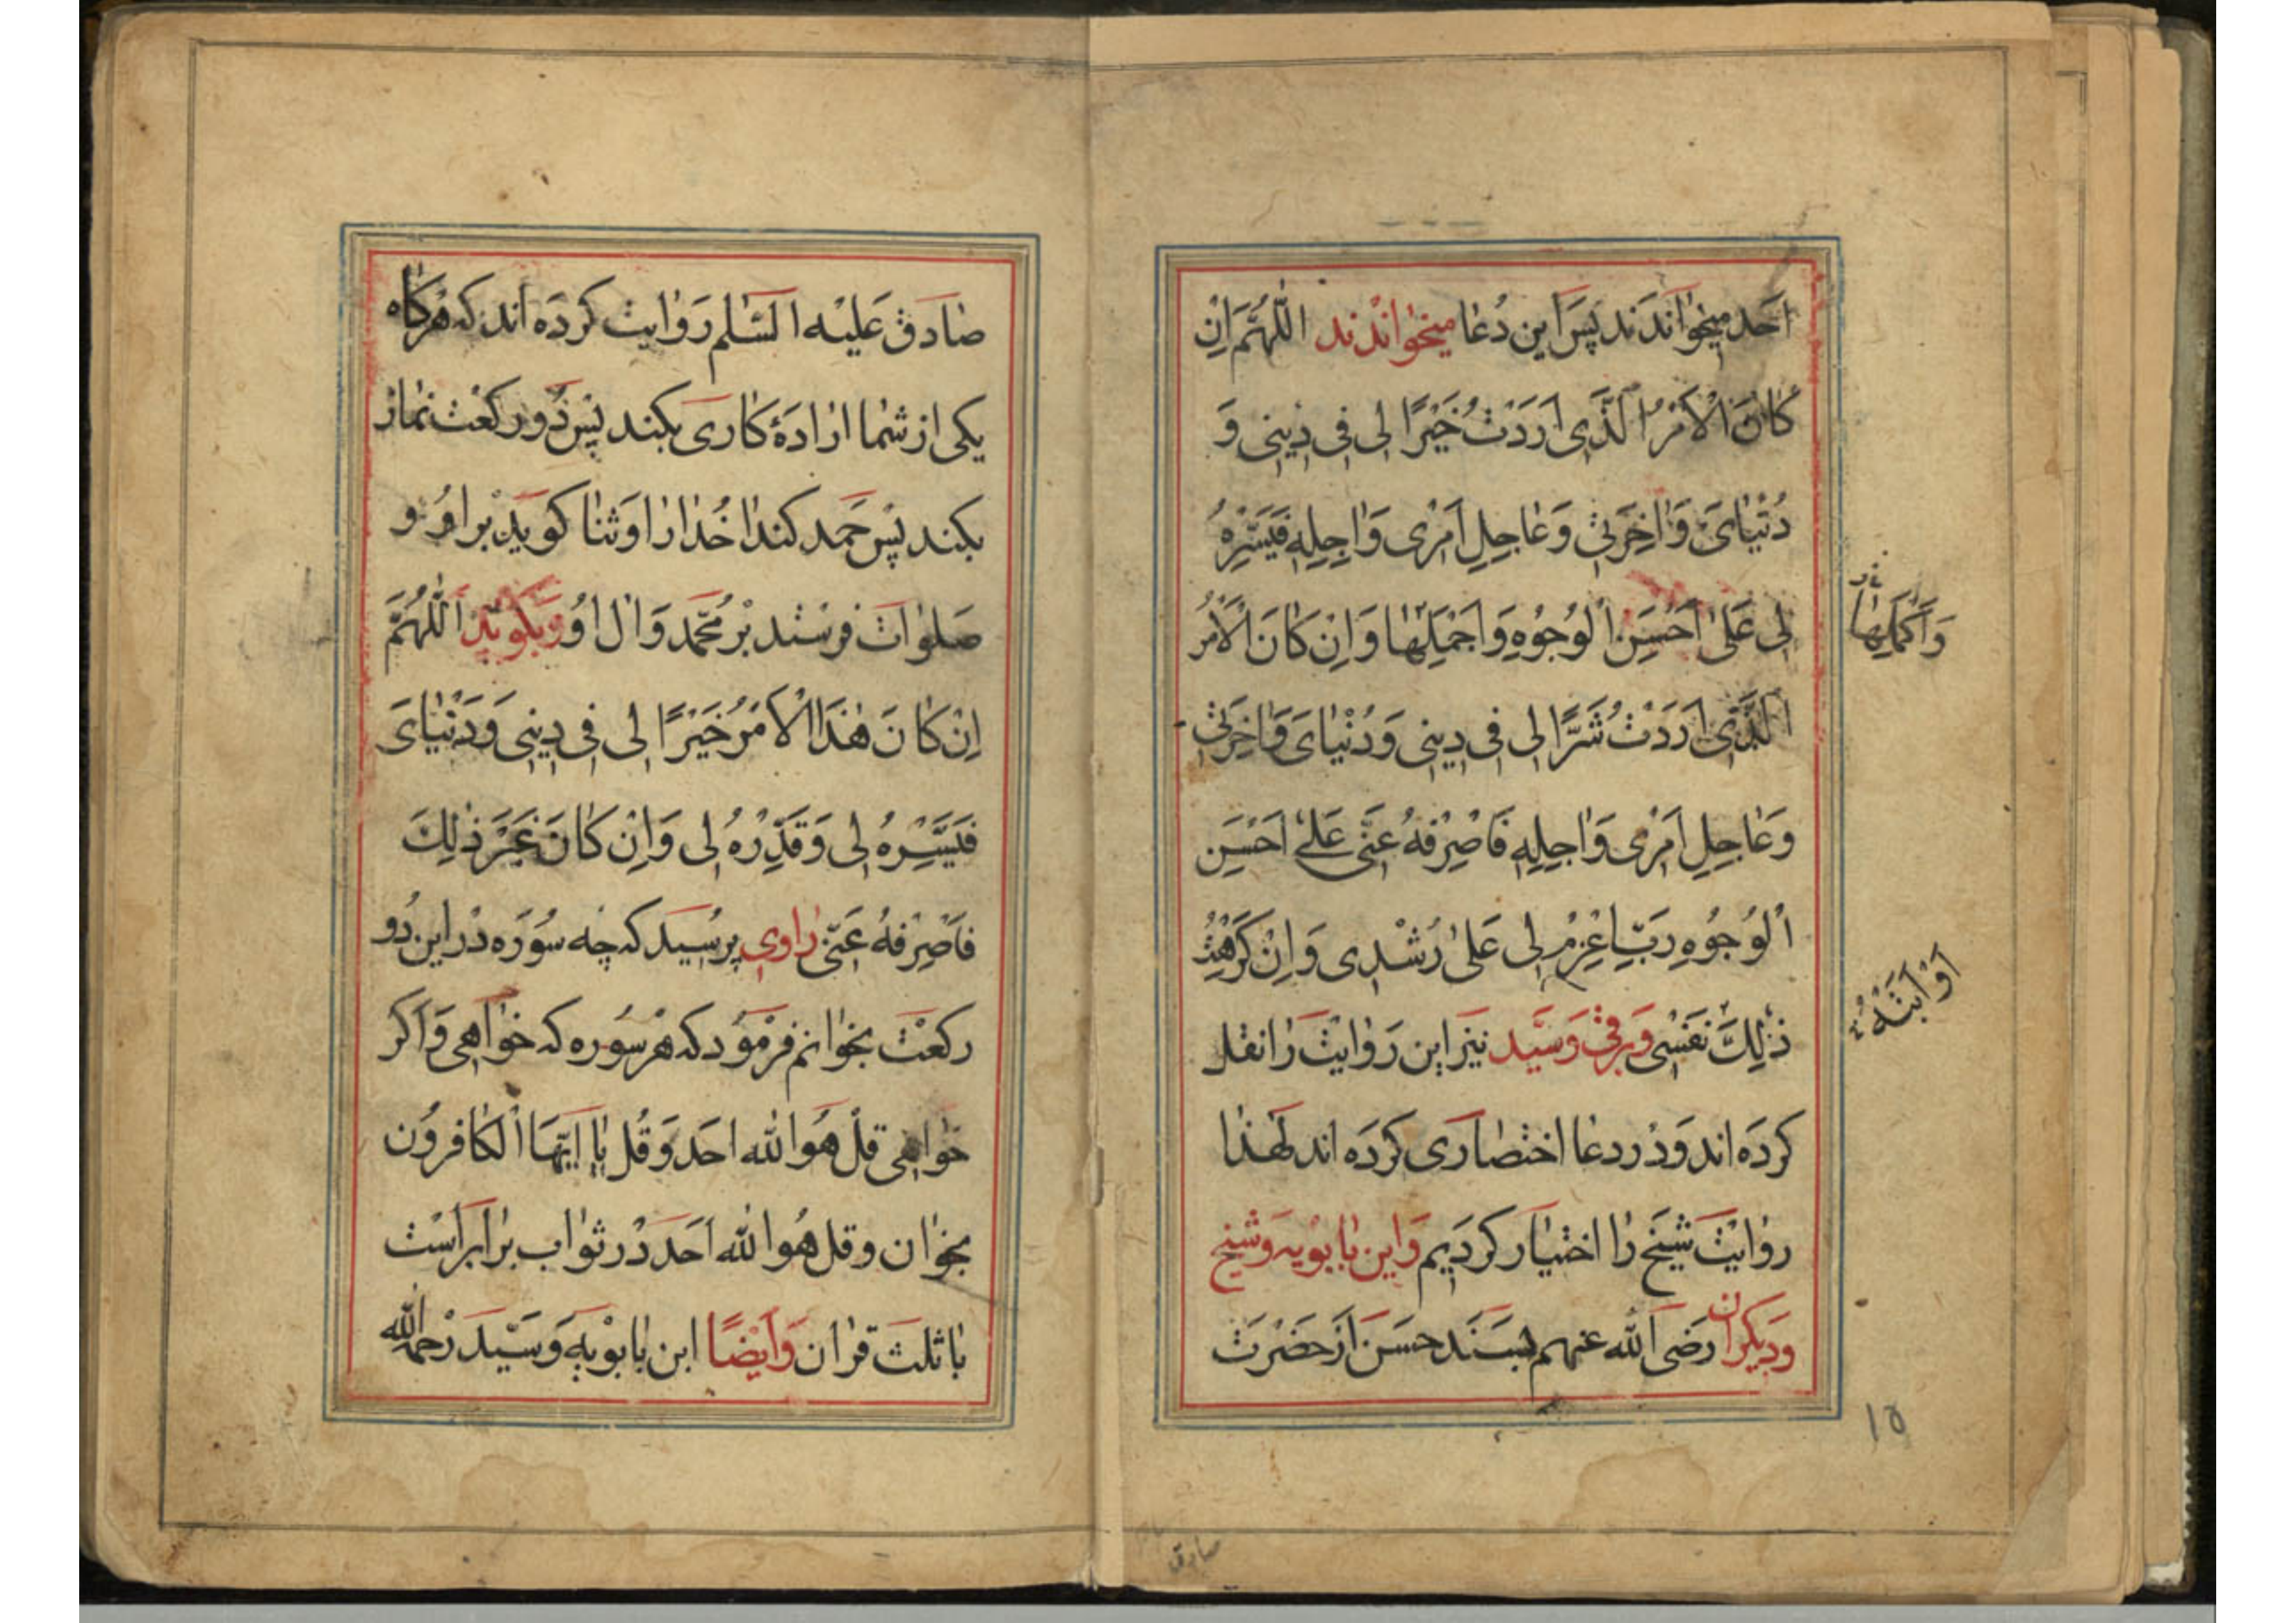 احد میخوانَدَند پَس این دُعا میخوانْدند اللّهُمَّ اِنْ
كانَ الْاَمْرُ الَّذی اَرَدْتُ خَیْرًا لی فی دینی وَ
دُنْیایَ وَاخِرَتی وَعاجِلِ اَمْری وَاجِلِهِ فَیَسِّرْهُ
لی عَلی اَحْسَنِ الْوُجُوهِ وَاَجْمَلِها وَاِنْ كانَ الْاَمْرُ
وَاَكْمَلِها
الَّذی اَرَدْتُ شَرًّا لی فی دینی وَدُنْیایَ وَاخِرَتی
وَعاجِلِ اَمْری وَاجِلِهِ فَاصْرِفْهُ عَنّی عَلی اَحْسَنِ
الْوُجُوهِ رَبِّ اعْزِمْ لی عَلی رُشْدی وَاِنْ كَرِهَتْ
اَوْ اَبَتْهُ
ذٰلِكَ نَفْسی وَبرقی وَسَیّد نیز این رَوایَت رَا نقل
كردَه اند وَدر دعا اختصاری كردَه اند لهذا
روایَت شیَخ را اختیار كردَیم وَابن بابویه وَشیخ
وَدیكران رَضی اَلله عنهم بسَنَد حسَن اَز حَضْرَت
۱۵
صادق
صادق عَلیْه السَّلم رَوایت كردَه اند كه هركاه
یكی از شما ارادَهٔ كاری بكند پَس دُو ركعت نماز
بكند پَس حَمد كند خُدا را وَثنا كوید بر اوُ و
صَلوات فرستد بر مُحَمَّد وَال اوُ وَبكوید اَللّهُمَّ
اِنْ كانَ هٰذَا الْاَمْرُ خَیْرًا لی فی دینی وَدُنْیایَ
فَیَسِّرْهُ لی وَقَدِّرْهُ لی وَاِنْ كانَ غَیْرَ ذٰلِكَ
فَاصْرِفْهُ عَنّی راوی پرسُید كه چه سوُرَه دْر این دُو
ركعْت بخوانم فرْموُد كه هر سوُره كه خواهی وَاَكر
خواهی قلْ هُوَ الله احد وَقُل یا اَیّهَا الْكافروُن
بخوان وقل هُوالله اَحَد دْر ثواب برابر اَسْت
با ثلث قران وَاَیْضًا ابن بابوْیه وَسَیّد رْحمهم الله